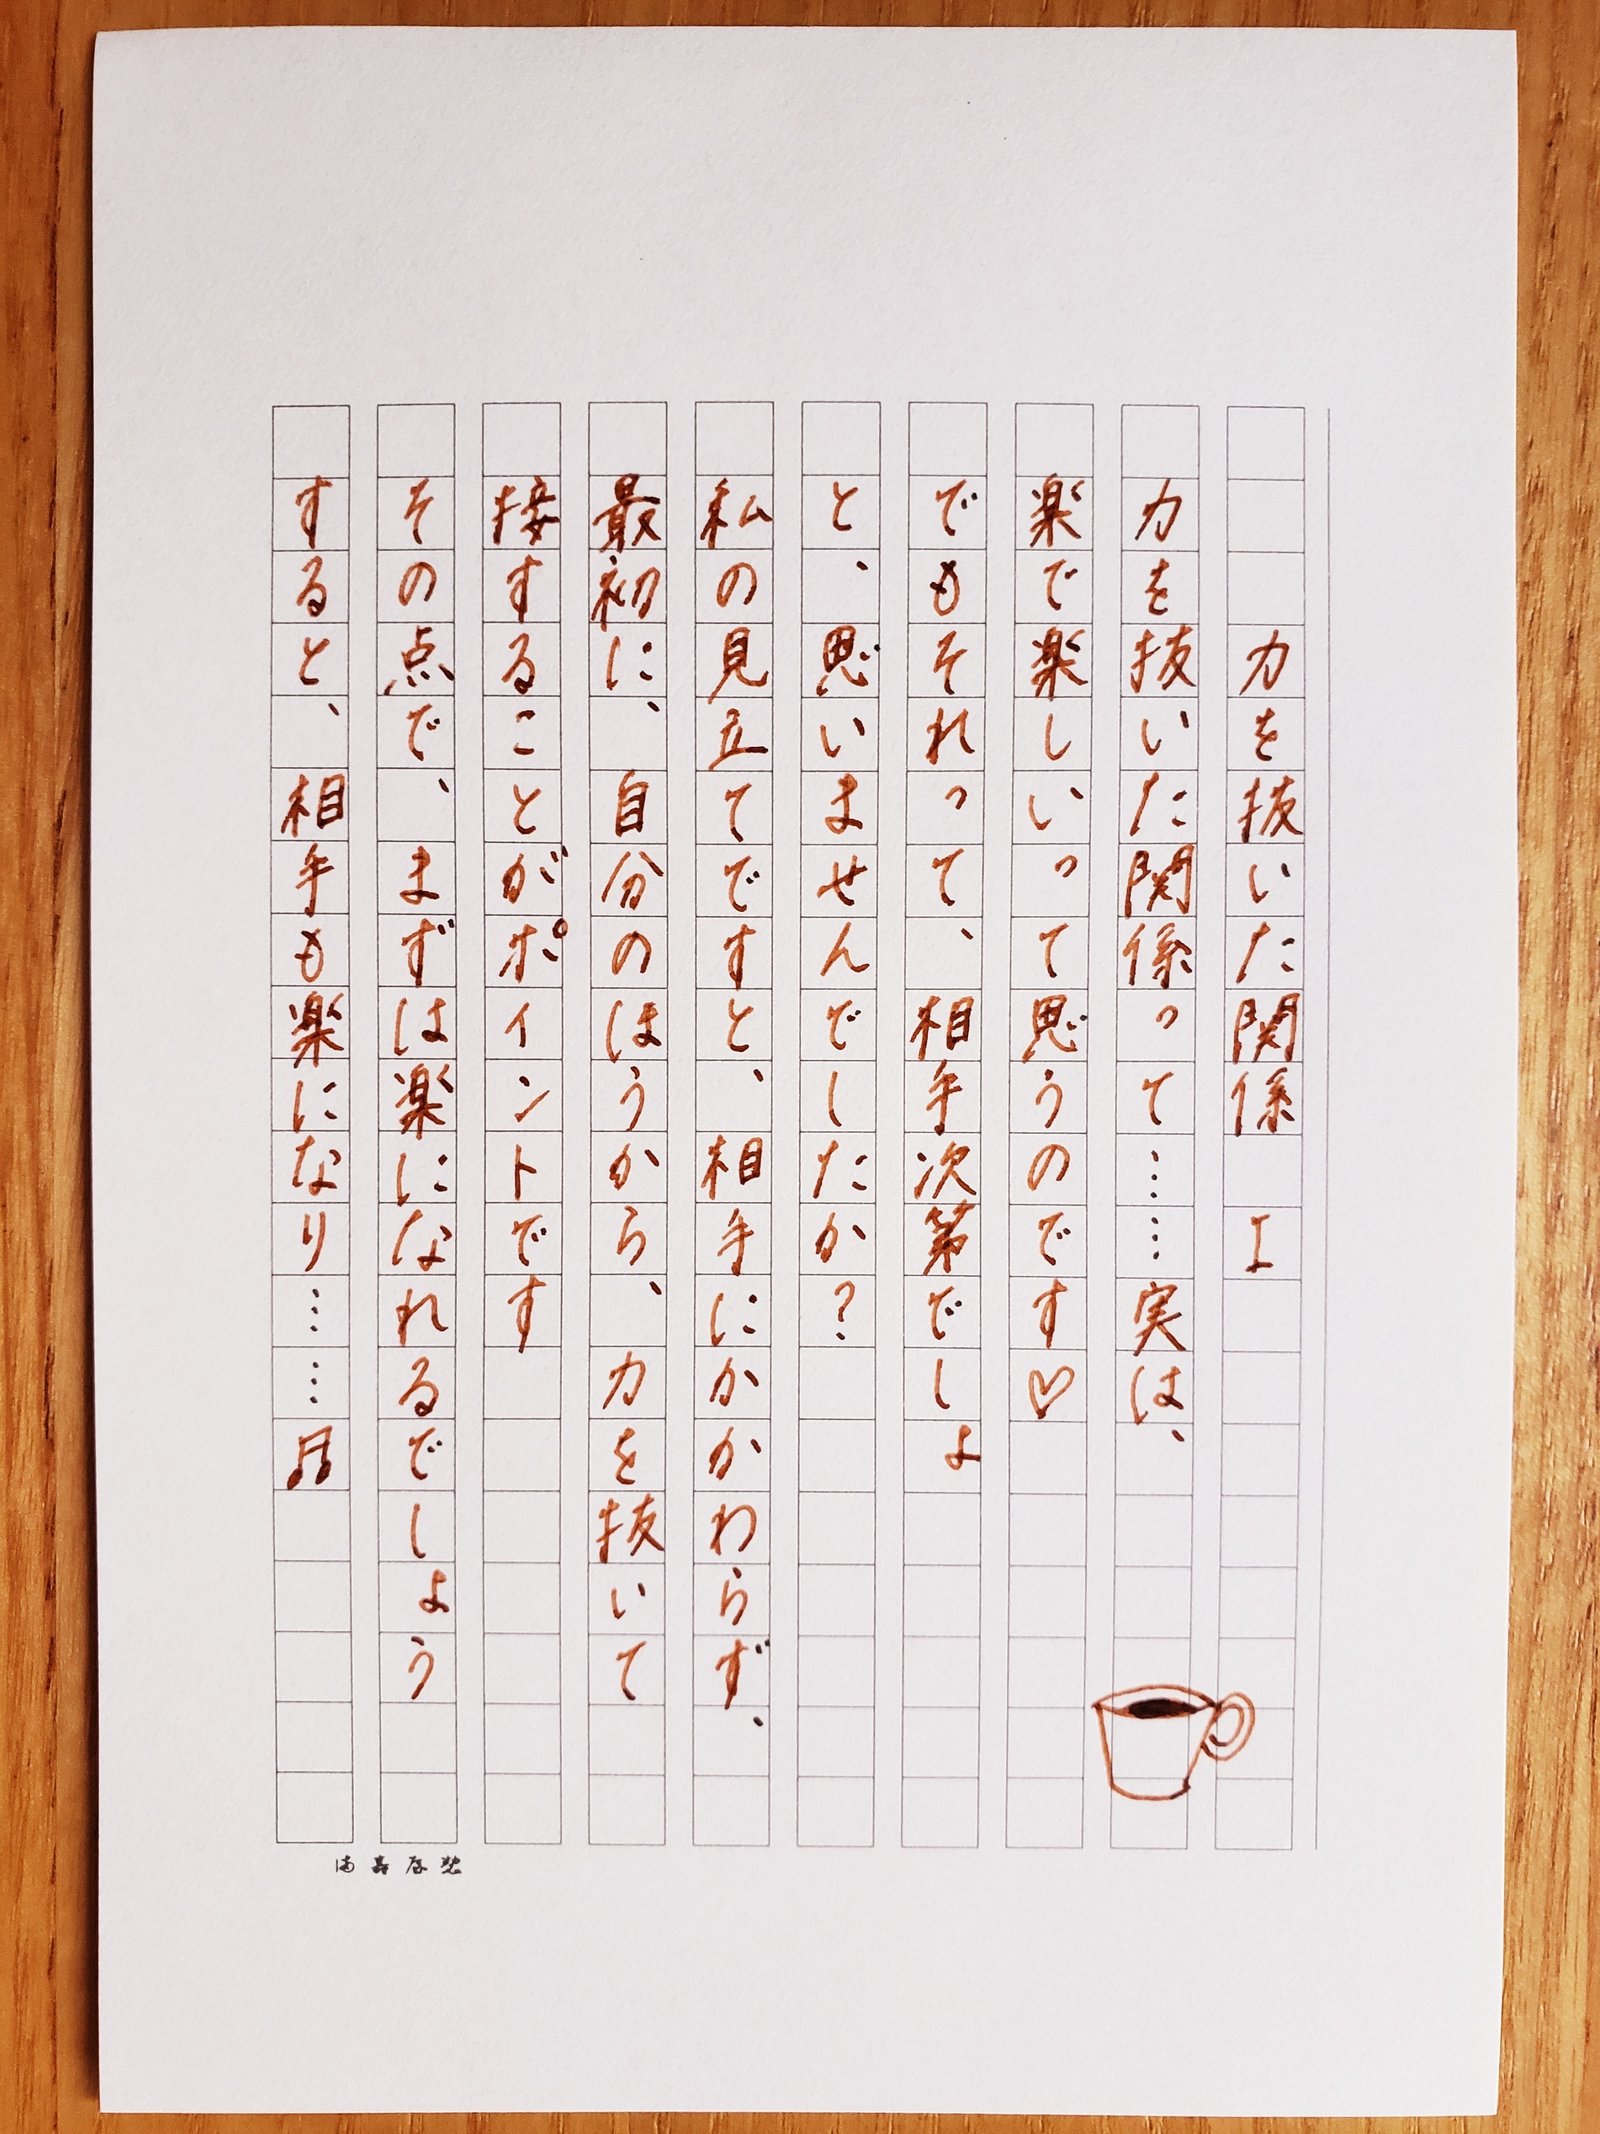 力を抜いた関係　I
力を抜いた関係って……実は、
楽で楽しいって思うのです♡
でもそれって、相手次第でしょ
と、思いませんでしたか？
私の見立てですと、相手にかかわらず、
最初に、自分のほうから、力を抜いて
接することがポイントです
その点で、まずは楽になれるでしょう
すると、相手も楽になり……♬